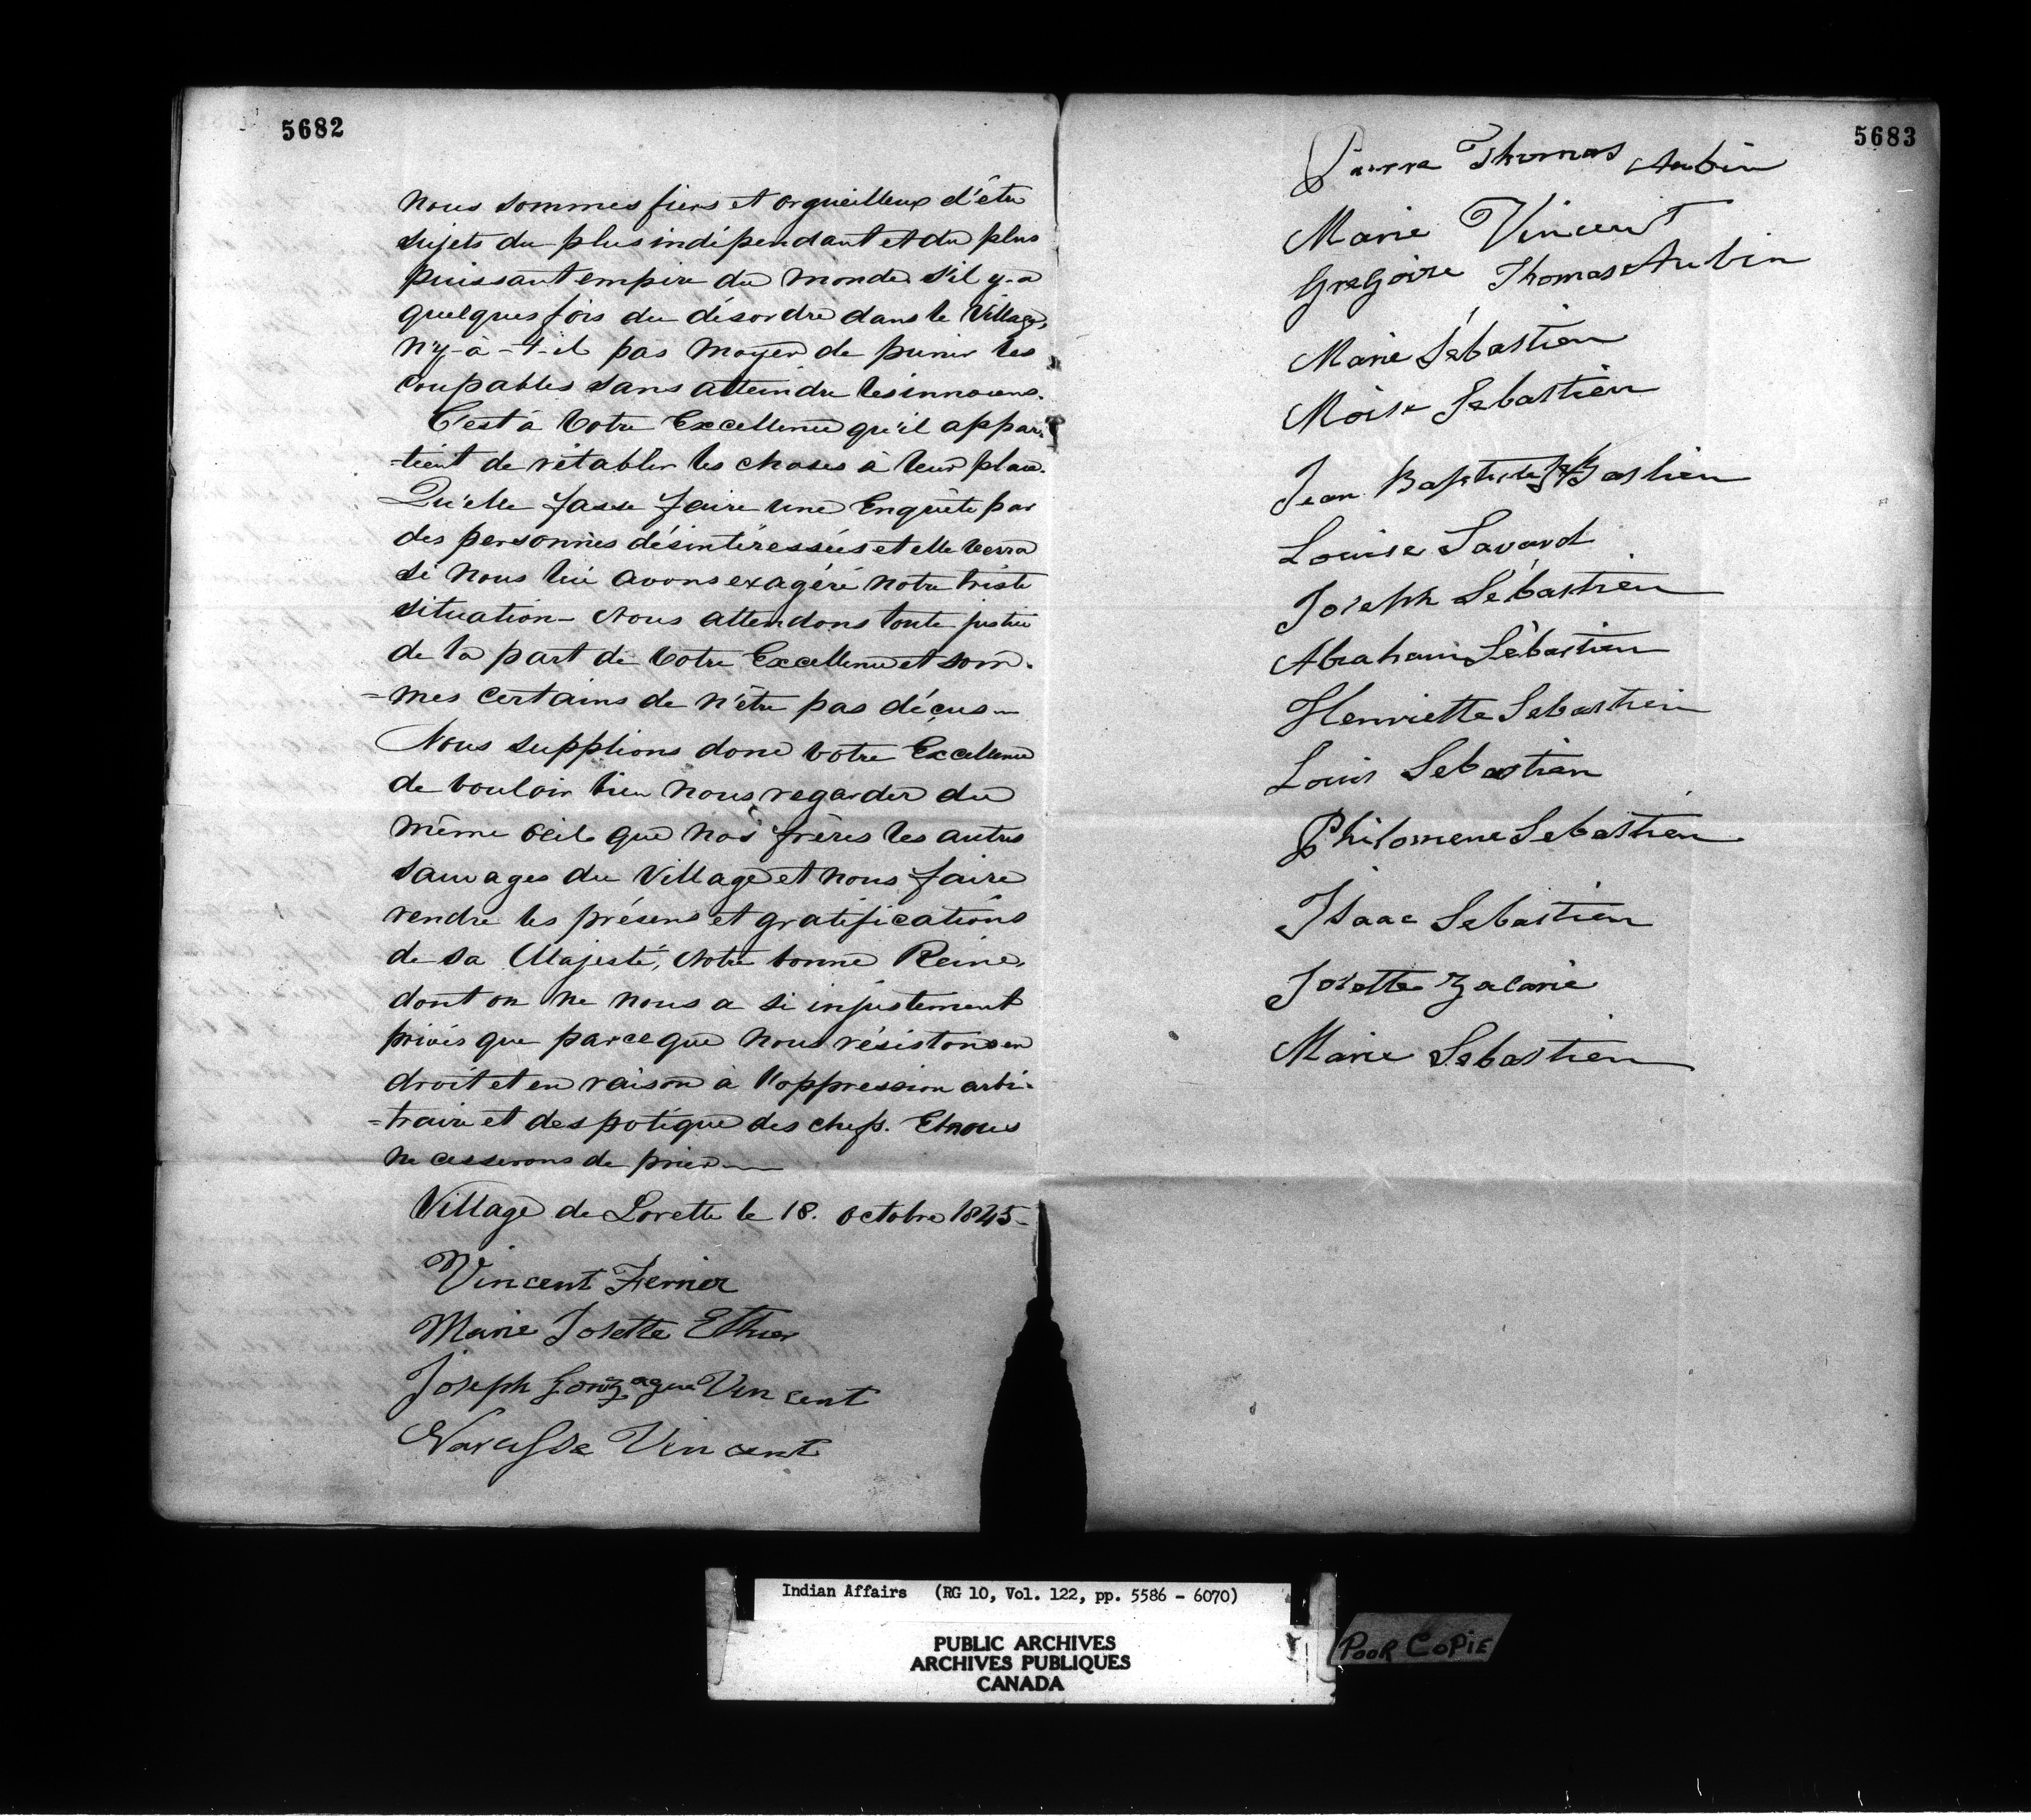 5682
nous sommes fiers et orgueilleux d'être
sujets du plus indépendant et du plus
puissant empire du monde. S'il y-a
quelques fois du désordre dans le Village,
n'y-à-t-il pas moyen de punir les
coupables sans atteindre les innocens.
C'est à Votre Excellence qu'il appar-
-tient de rétablir les choses à leur place.
Qu'elle fasse faire une Enquête par
des personnes désintéressées et elle verra
si nous lui avons exagéré notre triste
situation - Nous attendons toute justice
de la part de Votre Excellence et som-
=mes certains de n'être pas déçus -
Nous supplions donc Votre Excellence
de vouloir bien nous regarder du
même oeil que nos frères les autres
sauvages du Village et nous faire
rendre les présens et gratifications
de sa Majesté, Notre bonne Reine,
dont on ne nous a si injustement
privés que parceque nous résistons en
droit et en raison à l'oppression arbi-
=traire et despotique des chefs. Et nous
ne cesserons de prier
Village de Lorette le 18. octobre 1845 -
Vincent Ferrier
Marie Josette Ethier
Joseph Gonzague Vincent
Narcisse Vincent
5683
Pierre Thomas Aubin
Marie Vincent
Gregoire Thomas Aubin
Marie Sébastien
Moise Sebastien
Jean Baptiste Bastien
Louise Savard
Joseph Sébastien
Abraham Sébastien
Henriette Sebastien
Louis Sebastien
Philomene Sebastien
Isaac Sebastien
Josette Zacarie
Marie Sebastien
Indian Affairs (RG 10, Vol. 122, pp. 5586 - 6070)
PUBLIC ARCHIVES
ARCHIVES PUBLIQUES
CANADA
POOR COPIE